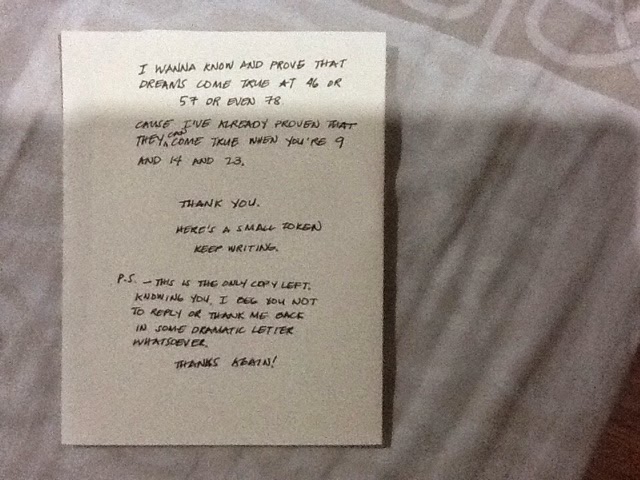 I WANNA KNOW AND PROVE THAT
DREAMS COME TRUE AT 46 OR
57 OR EVEN 78
CAUSE I'VE ALREADY PROVEN THAT
THEY CAN COME TRUE WHEN YOU'RE 9
AND 14 AND 23.
THANK YOU.
HERE'S A SMALL TOKEN
KEEP WRITING.
P.S. – THIS IS THE ONLY COPY LEFT.
KNOWING YOU, I BEG YOU NOT
TO REPLY OR THANK ME BACK
IN SOME DRAMATIC LETTER
WHATSOEVER.
THANKS AGAIN!